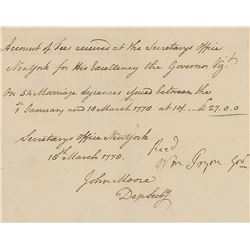 Account of Fees received at the Secretarys Office
NewYork for His Excellency the Governor Viz.
On 54 Marriage Lycences issued between the
1st January and 18 March 1778 at 10/.. £27..0.0
Secretarys Office NewYork
18th March 1778.
Rec'd
Wm Tryon Govr
John Moore
Dep Secty